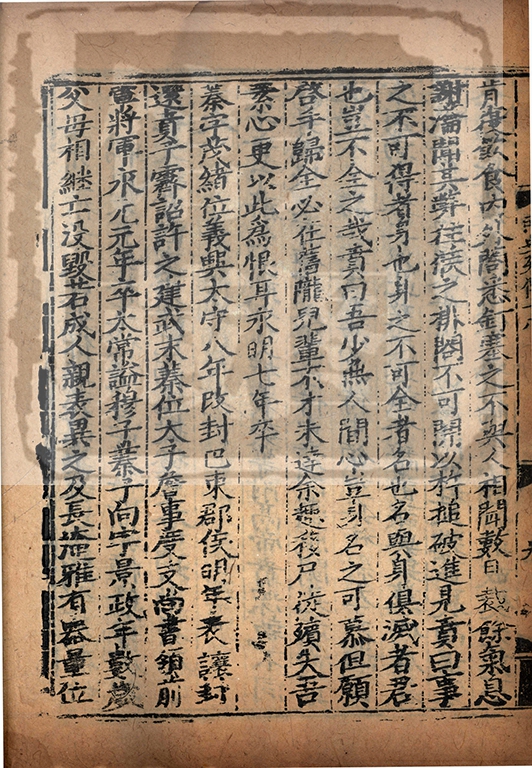 肯復飲食内外閤悉釘塞之不與人相聞數日裁餘氣息
謝瀹聞其弊往候之排閤不可開以杵搥破進見賁曰事
之不可得者身也身之不可全者名也名與身俱滅者君
也豈不全之哉賁曰吾少無人間心豈身名之可慕但願
啓手歸全必在舊隴兒輩不才未達余趣移尸從殯失吾
素心更以此爲恨耳永明七年卒
蓁字茂緒位義興太守八年改封巴東郡侯明年表讓封
還賁子霽詔許之建武末蓁位太子詹事度支尚書領前
軍將軍永元元年卒太常謚穆子蓁子向字景政年數歲
父母相繼亡没毀若成人親表異之及長淹雅有器量位